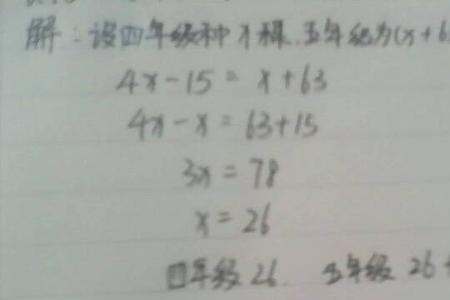 解：设四年级种x棵.五年级为(x+6
4x-15=x+63
4x-x=63+15
3x=78
x=26
四年级26. 五年级26